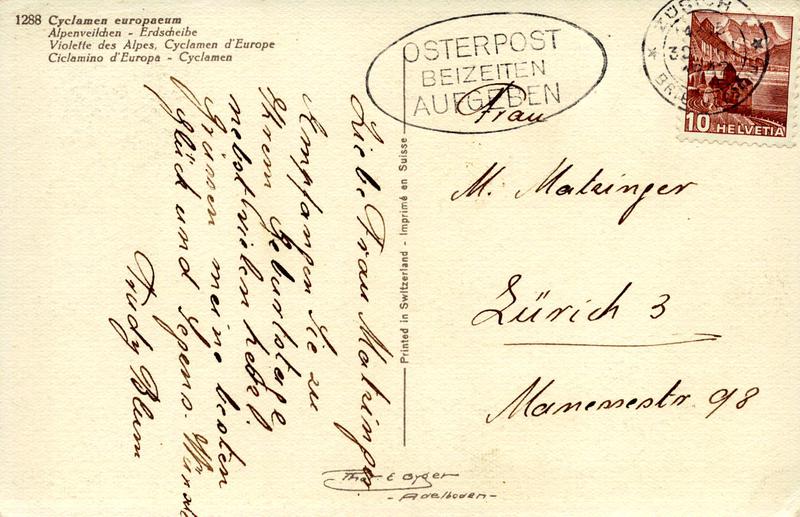 1288 Cyclamen europaeum
Alpenveilchen - Erdscheibe
Violette des Alpes, Cyclamen d'Europe
Ciclamino d'Europa - Cyclamen
OSTERPOST
BEIZEITEN
AUFGEBEN
ZÜRICH
10 HELVETIA
Frau
M. Matzinger
Zürich 3
Manessestr. 98
Printed in Switzerland - Imprimé en Suisse
Liebe Frau Matzinger.
Empfangen Sie zu
Ihrem Geburtstage
nebst vielen
Grüssen meine besten
Glück und Segens-
Trudy Blum
E Gyger
- Adelboden -